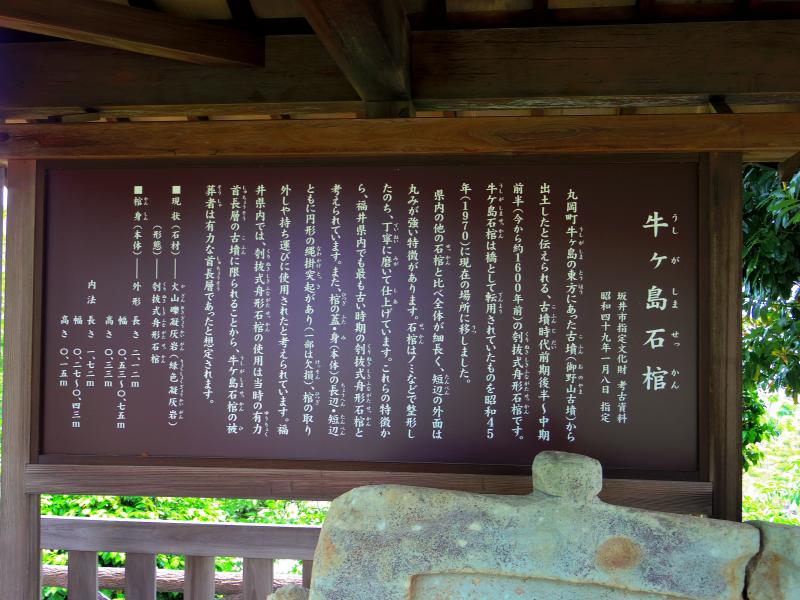 牛ヶ島石棺
坂井市指定文化財 考古資料
昭和四十九年一月八日 指定
丸岡町牛ヶ島の東方にあった古墳(御野山古墳)から
出土したと伝えられる、古墳時代前期後半〜中期
前半(今から約1600年前)の刳抜式舟形石棺です。
牛ヶ島石棺は橋として転用されていたものを昭和45
年(1970)に現在の場所に移しました。
県内の他の石棺と比べ全体が細長く、短辺の外面は
丸みが強い特徴があります。石棺はノミなどで整形し
たのち、丁寧に磨いて仕上げています。これらの特徴か
ら、福井県内でも最も古い時期の刳抜式舟形石棺と
考えられています。また、棺の蓋・身(本体)の長辺・短辺
ともに円形の縄掛突起があり(一部は欠損)、棺の取り
外しや持ち運びに使用されたと考えられています。福
井県内では、刳抜式舟形石棺の使用は当時の有力
首長層の古墳に限られることから、牛ヶ島石棺の被
葬者は有力な首長層であったと想定されます。
■現状(石材)――火山礫凝灰岩(緑色凝灰岩)
(形態)――刳抜式舟形石棺
■棺身(本体)――外形 長さ 二.一二m
幅 〇.五三〜〇.七五m
高さ 〇.三二m
内法 長さ 一.七二m
幅 〇.二七〜〇.四三m
高さ 〇.一五m